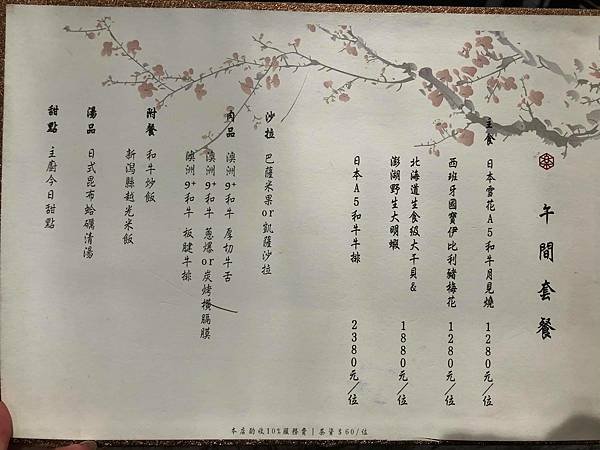 午間套餐
主食 日本雪花A5和牛月見燒 1280元/位
西班牙國寶伊比利豬梅花 1280元/位
北海道生食級大干貝&
澎湖野生大明蝦 1880元/位
日本A5和牛牛排 2380元/位
沙拉 巴薩米果or凱薩沙拉
肉品 澳洲9+和牛 厚切牛舌
澳洲9+和牛 蔥爆or炭烤橫膈膜
澳洲9+和牛 板腱牛排
附餐 和牛炒飯
新潟縣越光米飯
湯品 日式昆布蛤蠣清湯
甜點 主廚今日甜點
本店酌收10%服務費|茶資$60/位